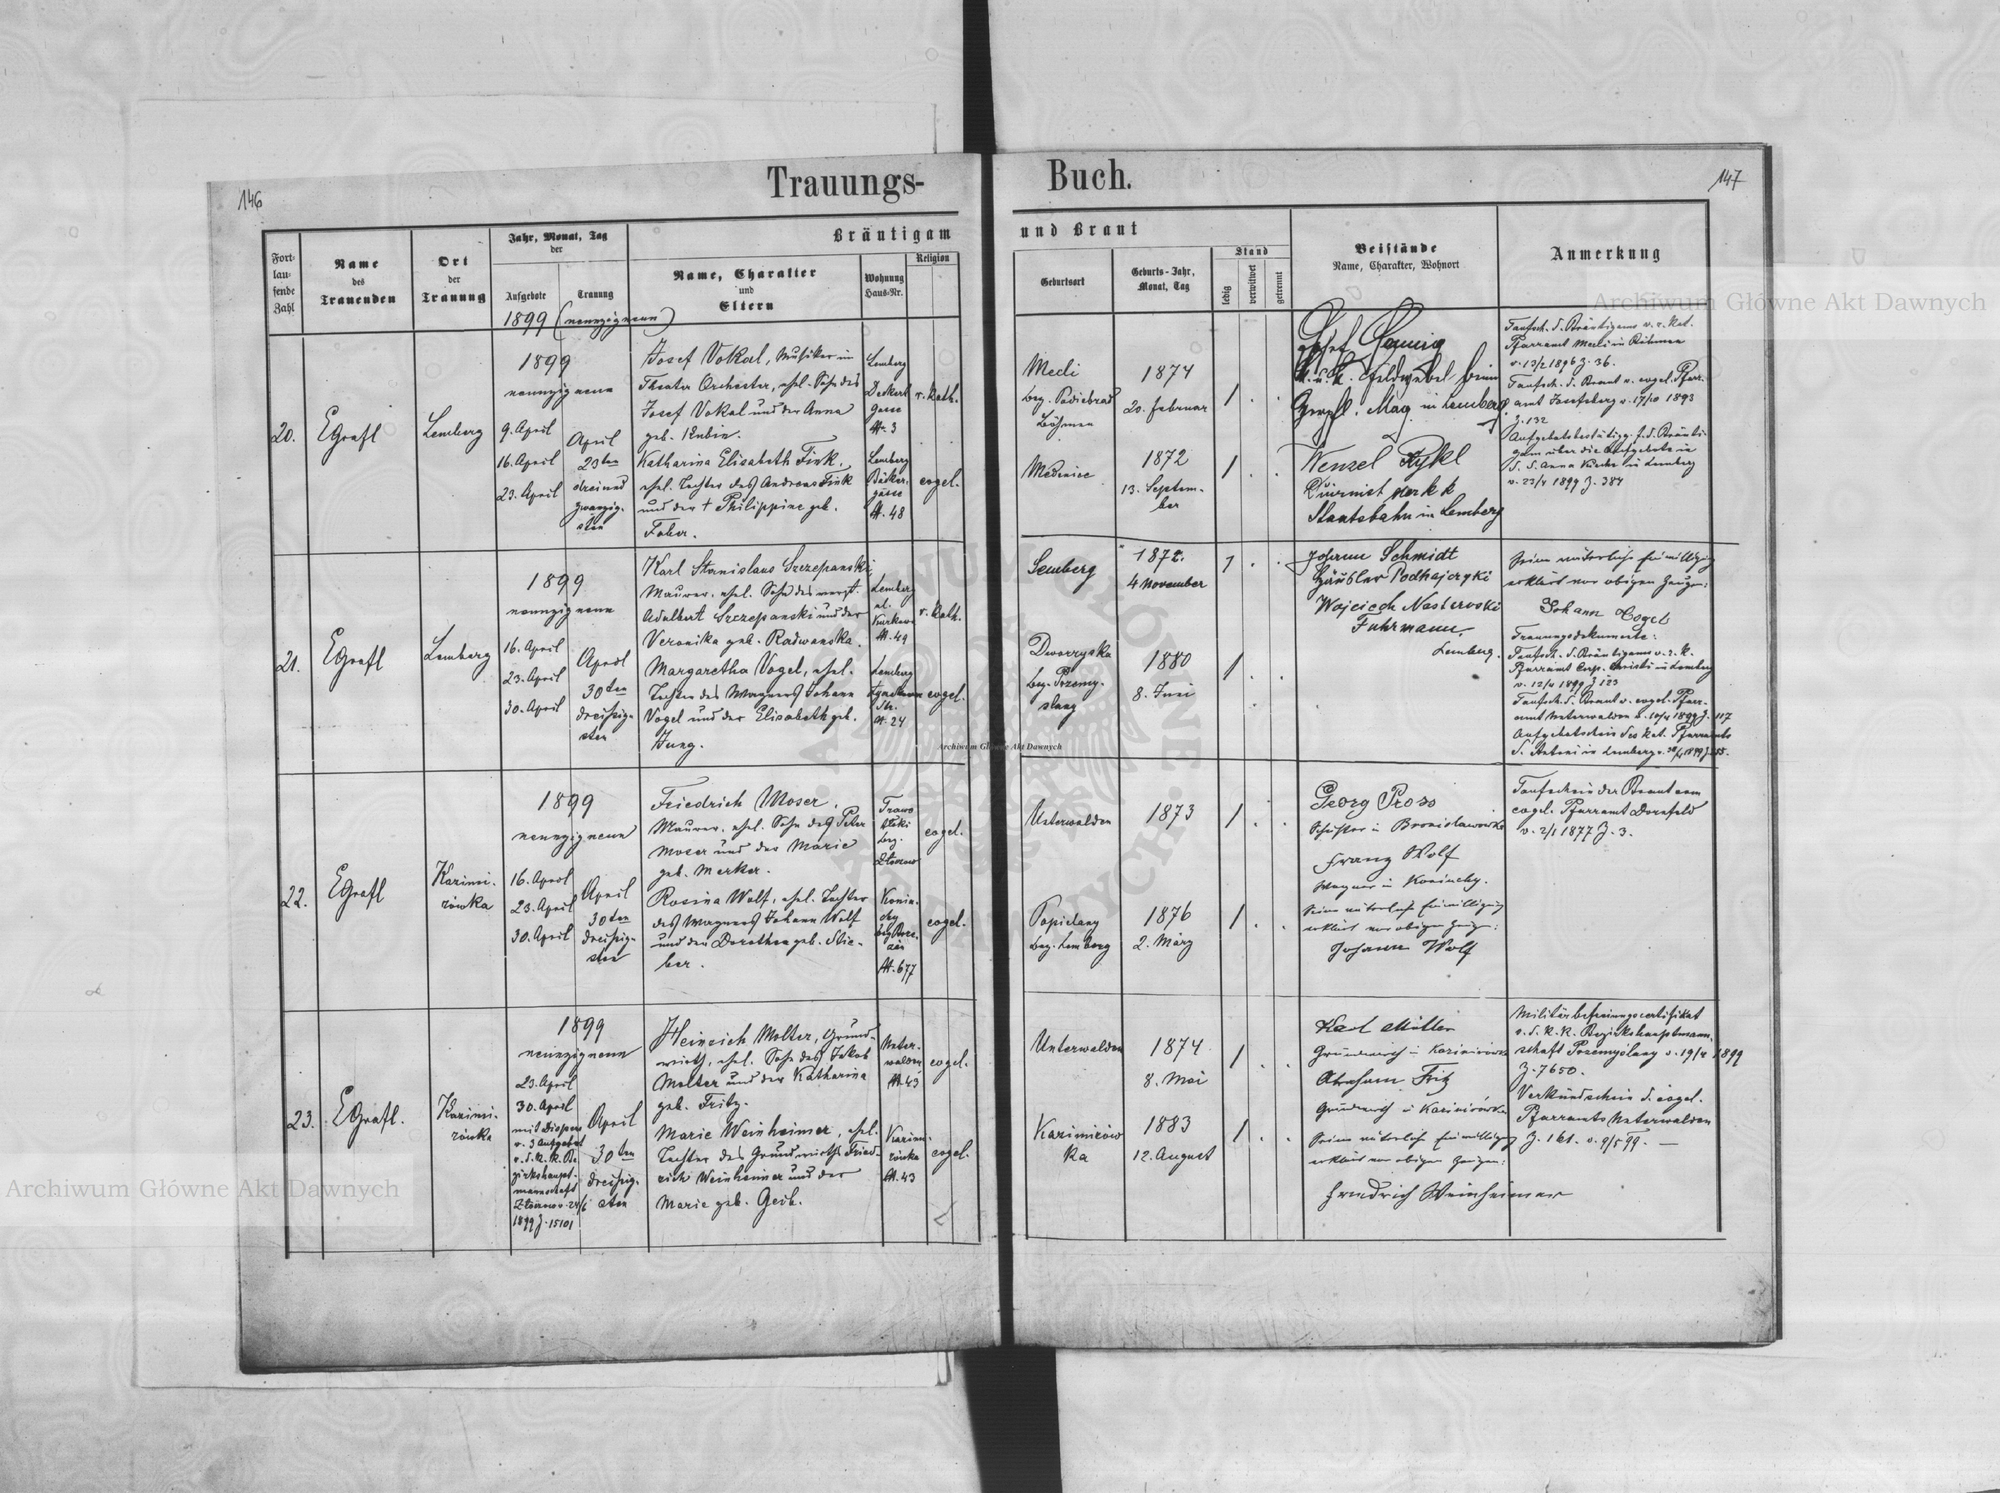 146
Trauungs-
Buch.
147
Fort-
lau-
fende
Zahl
Name
des
Trauenden
Ort
der
Trauung
Jahr, Monat, Tag
der
Aufgebote
Trauung
1899 (neunzigneun)
Bräutigam
Name, Charakter
und
Eltern
Wohnung
Haus-Nr.
Religion
und Braut
Geburtsort
Geburts-Jahr,
Monat, Tag
Stand
ledig
verwitwet
getrennt
Beistände
Name, Charakter, Wohnort
Anmerkung
20.
EGrafl
Lemberg
1899
neunzigneun
9. April
16. April
23. April
April
23ten
dreiund
zwanzig-
sten
Josef Vokal, Musiker im
Theater Orchester, ehel. Sohn des
Josef Vokal und der Anna
geb. Kubin.
Katharina Elisabeth Fink,
ehel. Tochter des Andreas Fink
und der † Philippine geb.
Faber.
Lemberg
gasse
№ 3
Lemberg
Bäcker-
gasse
№ 48
r. kath.
evgel.
Bez. Podiebrad
Böhmen
1874
20. Februar
1872
13. Septem-
ber
Josef
k.u.k. Feldwebel beim
Mag. in Lemberg
Wenzel
Staatsbahn in Lemberg
Taufsch. d. Bräutigams v. r. kat.
Pfarramt
v. 13/2 1896 Z. 36.
Taufsch. d. Braut v. evgel. Pfarr-
amt Josefsberg v. 17/10 1893
Z. 132
gam über die Aufgebote in
d. S. Anna Kirche in Lemberg
v. 23/4 1899 Z. 384
21.
EGrafl
Lemberg
1899
neunzigneun
16. April
23. April
30. April
April
30ten
dreißig-
sten
Karl Stanislaus Szczepanski,
Maurer, ehel. Sohn des verst.
Adalbert Szczepanski und der
Veronika geb. Radwanska.
Margaretha Vogel, ehel.
Tochter des Wagners Johann
Vogel und der Elisabeth geb.
Jung.
Lemberg
ul.
Kurkowa
№ 49
Lemberg
Str.
№ 24
r. kath.
evgel.
Lemberg
1872.
4 November
Bez. Przemy-
slany
1880
8. Juni
Johann Schmidt
Häusler Podhajczyki
Wojciech Nasterowski
Fuhrmann,
Lemberg.
Seine väterliche Einwilligung
erklärt vor obigen Zeugen:
Johann Vogel
Trauungsdokumente:
Taufsch. d. Bräutigams v. r. k.
Pfarramt Corp. Christi in Lemberg
v. 12/4 1899 Z 123
Taufsch. d. Braut v. evgel. Pfarr-
amt Unterwalden v. 10/4 1899 Z. 117
Aufgebotschein des kat. Pfarramts
S. Antoni in Lemberg
22.
EGrafl
Kazimi-
rówka
1899
neunzigneun
16. April
23. April
30. April
April
30ten
dreißig-
sten
Friedrich Moser,
Maurer, ehel. Sohn des Peter
Moser und der Marie
geb. Merker.
Rosina Wolf, ehel. Tochter
des Wagners Johann Wolf
und der Dorothea geb. Stie-
ber.
bez.
Złoczow
№ 677
evgel.
evgel.
Unterwalden
1873
Bez. Lemberg
1876
2. März
Georg Pross
Schuster in Bronislawowka
Franz Wolf
Wagner in
Seine väterliche Einwilligung
erklärt vor obigen Zeugen:
Johann Wolf
Taufschein der Braut vom
evgel. Pfarramt Dornfeld
v. 2/1 1877 Z. 3.
23.
EGrafl.
Kazimi-
rówka
1899
neunzigneun
23. April
30. April
mit Dispens
v. 3 Aufgebot
v. d. k. k. Be-
zirkshaupt-
mannschaft
1899 Z. 15101
April
30ten
dreißig-
sten
Heinrich Molter, Grund-
wirth, ehel. Sohn des Jakob
Molter und der Katharina
geb. Fritz.
Marie Weinheimer, ehel.
Tochter des Grundwirths Fried-
rich Weinheimer und der
Marie geb. Geib.
Unter-
walden
№ 43
Kazimi-
rówka
№ 43
evgel.
evgel.
Unterwalden
1874
8. Mai
Kazimirów
ka
1883
12. August
Karl Müller
Grundwirth in Kazimirówka
Abraham Fritz
Grundwirth in Kazimirówka
Seine väterliche Einwilligung
erklärt vor obigen Zeugen:
Friedrich Weinheimer
Militärbefreiungscertifikat
v. d. k. k. Bezirkshauptmann-
schaft Przemyślany v. 19/4 1899
Z. 7650.
Verkündschein d. evgel.
Pfarramts Unterwalden
Z. 161. v. 9/5 99. —
Archiwum Główne Akt Dawnych
Archiwum Główne Akt Dawnych
Archiwum Główne Akt Dawnych